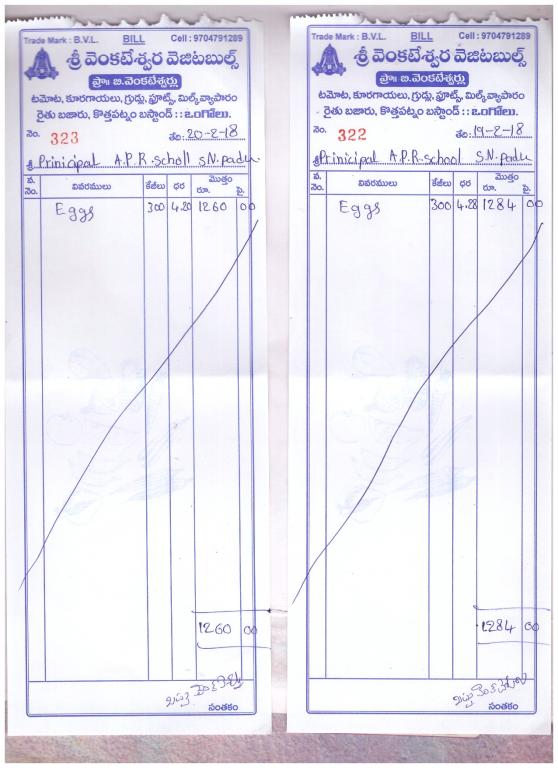 Trade Mark : B.V.L. BILL Cell : 9704791289
శ్రీ వెంకటేశ్వర వెజిటబుల్స్
ప్రొః బి.వెంకటేశ్వర్లు
టమోట, కూరగాయలు, గ్రుడ్లు, ఫ్రూట్స్, మిల్క్‌వ్యాపారం
రైతు బజారు, కొత్తపట్నం బస్టాండ్ : : ఒంగోలు.
నెం. 323 తేది: 20-2-18
శ్రీ Prinicipal A.P.R. scholl S.N. padu
వ. నెం. వివరములు కేజీలు ధర మొత్తం రూ. పై.
Eggs 300 4.20 1260 00
1260 00
సంతకం
Trade Mark : B.V.L. BILL Cell : 9704791289
శ్రీ వెంకటేశ్వర వెజిటబుల్స్
ప్రొః బి.వెంకటేశ్వర్లు
టమోట, కూరగాయలు, గ్రుడ్లు, ఫ్రూట్స్, మిల్క్‌వ్యాపారం
రైతు బజారు, కొత్తపట్నం బస్టాండ్ : : ఒంగోలు.
నెం. 322 తేది: 19-2-18
శ్రీ Prinicipal A.P.R. school S.N. padu
వ. నెం. వివరములు కేజీలు ధర మొత్తం రూ. పై.
Eggs 300 4.28 1284 00
1284 00
సంతకం